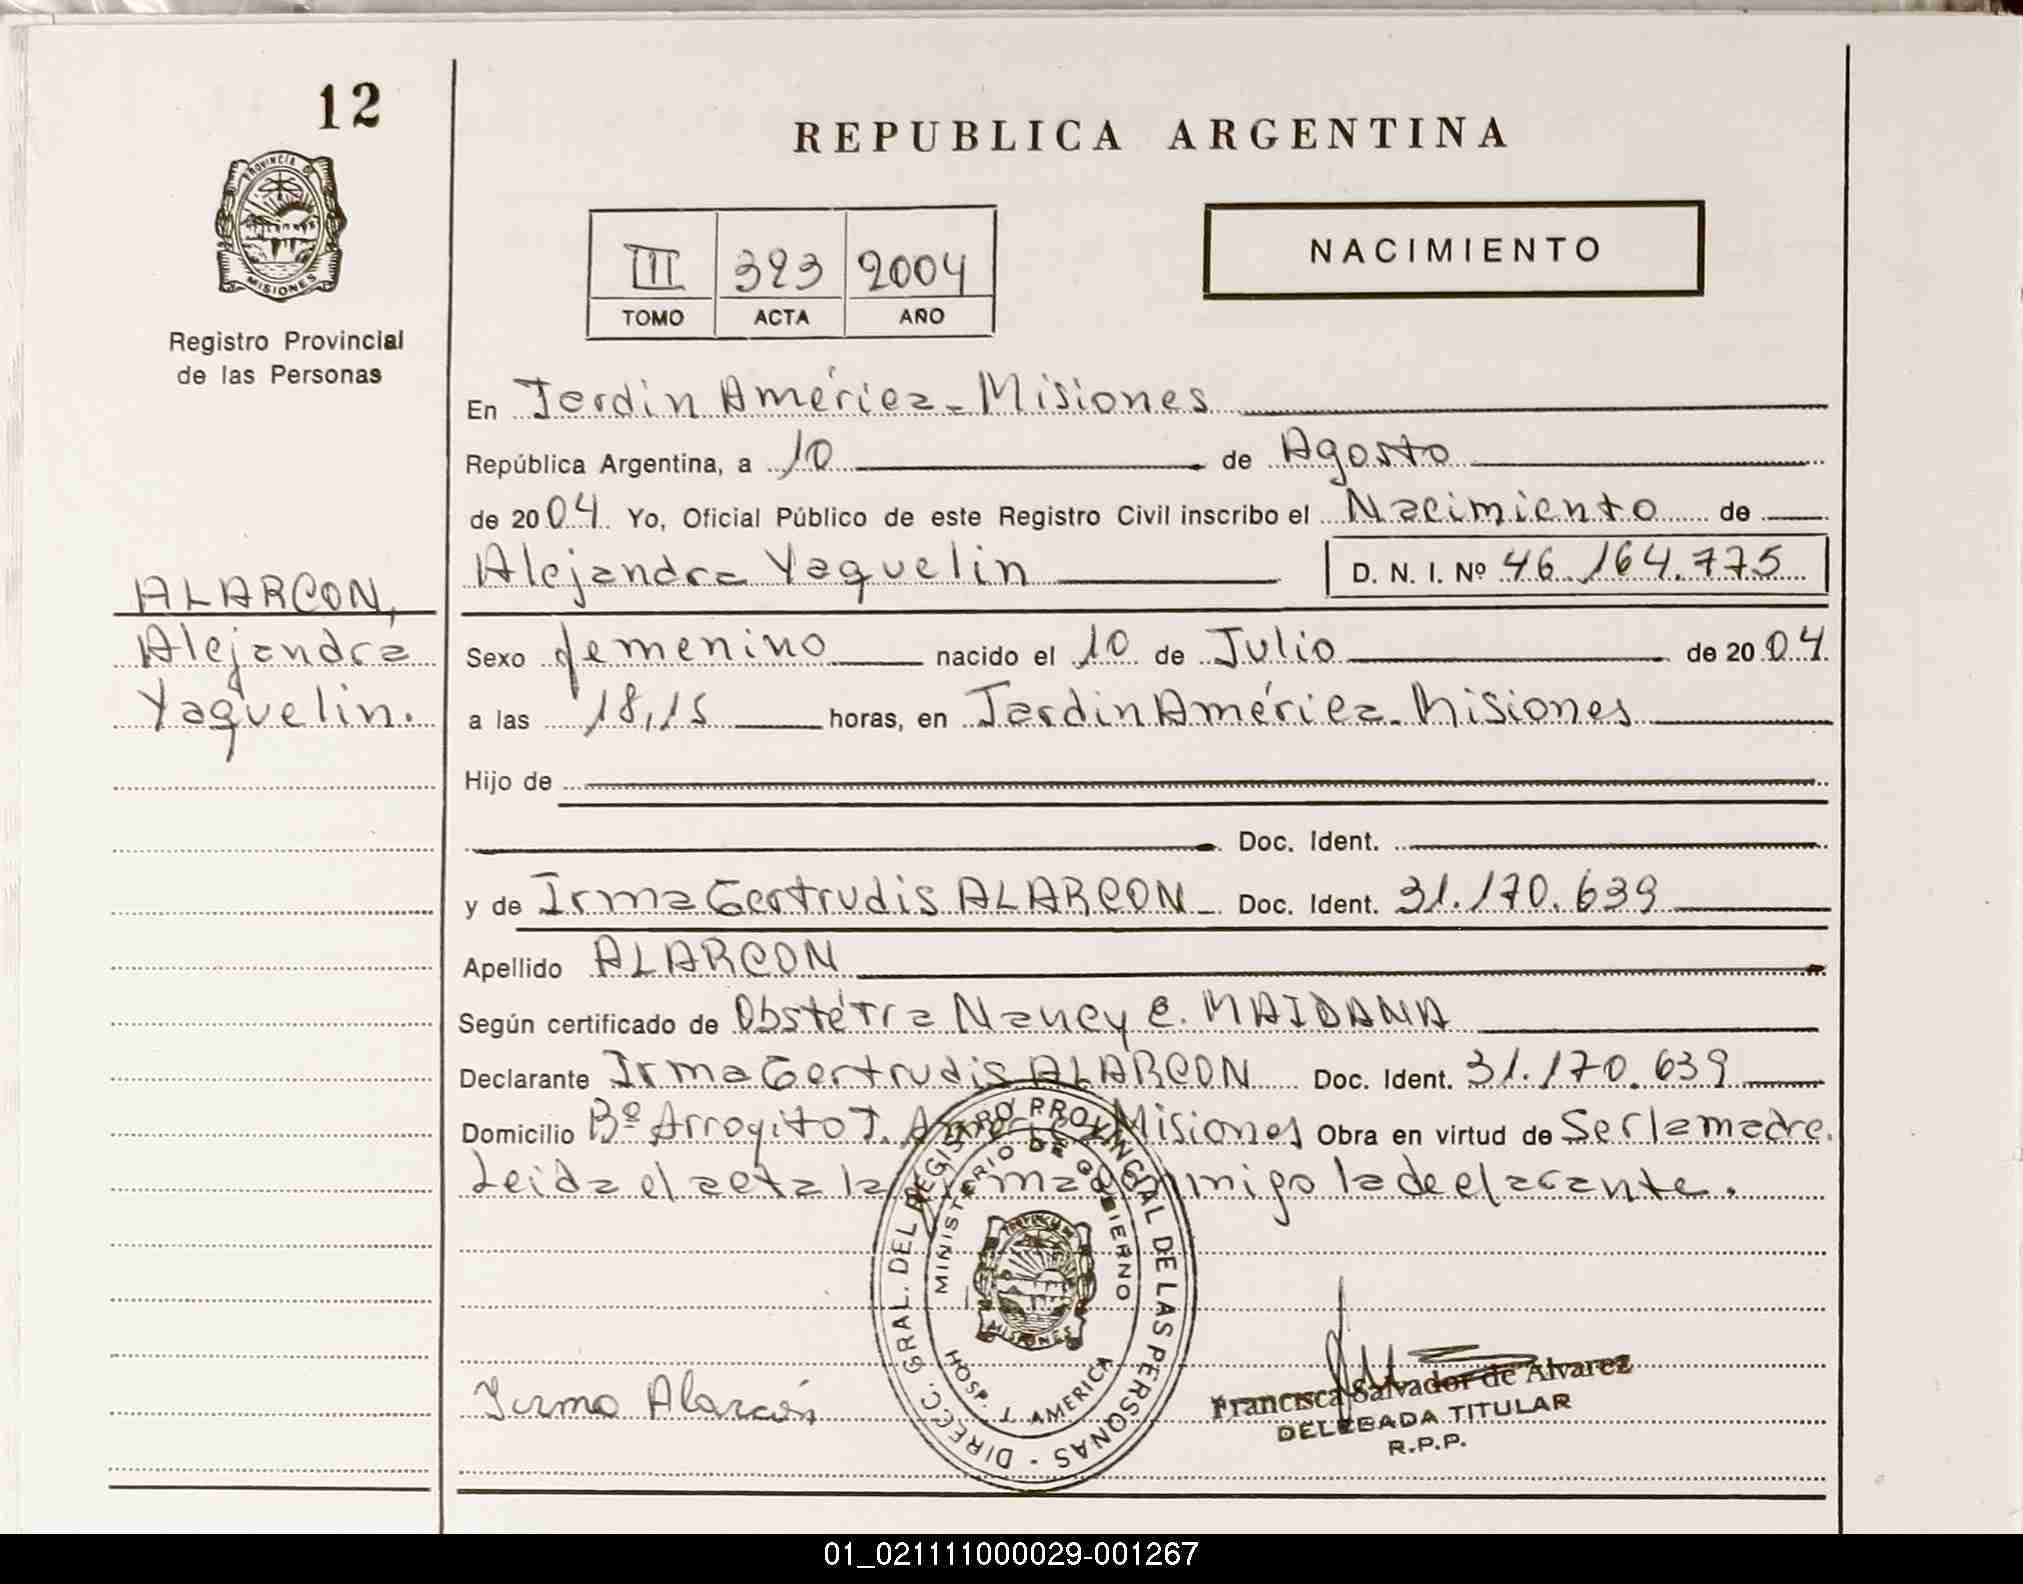 12
PROVINCIA DE
MISIONES
Registro Provincial
de las Personas
REPUBLICA ARGENTINA
III 323 2004
TOMO ACTA AÑO
NACIMIENTO
En Jardin América - Misiones
República Argentina, a 10 de Agosto
de 2004 Yo, Oficial Público de este Registro Civil inscribo el Nacimiento de
Alejandra Yaquelin D. N. I. Nº 46.164.775
ALARCON,
Alejandra
Yaquelin.
Sexo femenino nacido el 10 de Julio de 2004
a las 18,15 horas, en Jardin América - Misiones
Hijo de
Doc. Ident.
y de Irma Gertrudis ALARCON Doc. Ident. 31.170.639
Apellido ALARCON
Según certificado de Obstétra Nancy C. MAIDANA
Declarante Irma Gertrudis ALARCON Doc. Ident. 31.170.639
Domicilio Bº Arroyito J. América Misiones Obra en virtud de Ser la madre.
Leida el acta la firma conmigo la declarante.
DIRECC. GRAL. DEL REGISTRO PROVINCIAL DE LAS PERSONAS -
MINISTERIO DE GOBIERNO
MISIONES
HOSP. J. AMERICA
Irma Alarcón
Francisca Salvador de Alvarez
DELEGADA TITULAR
R.P.P.
01_021111000029-001267